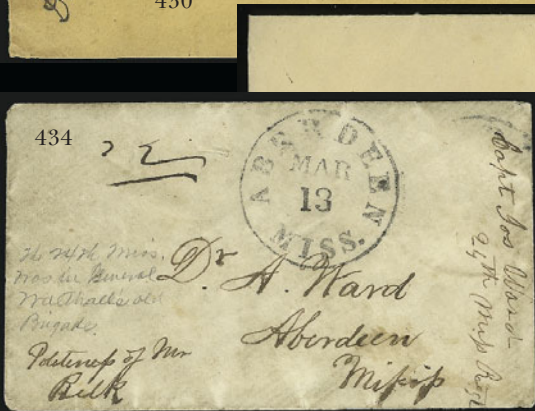 430
434
ABERDEEN
MAR
13
MISS.
Capt Jos Ward
24th Miss Regt
The 24th Miss.
was in General
Walthall's old
Brigade.
Dr A. Ward
Aberdeen
Missip
Politeness of Mr
Belk